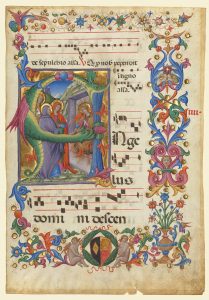 de sepulchro alla Qui pro nobis pependit
in ligno
alla
Nge
lus
domi ni descen